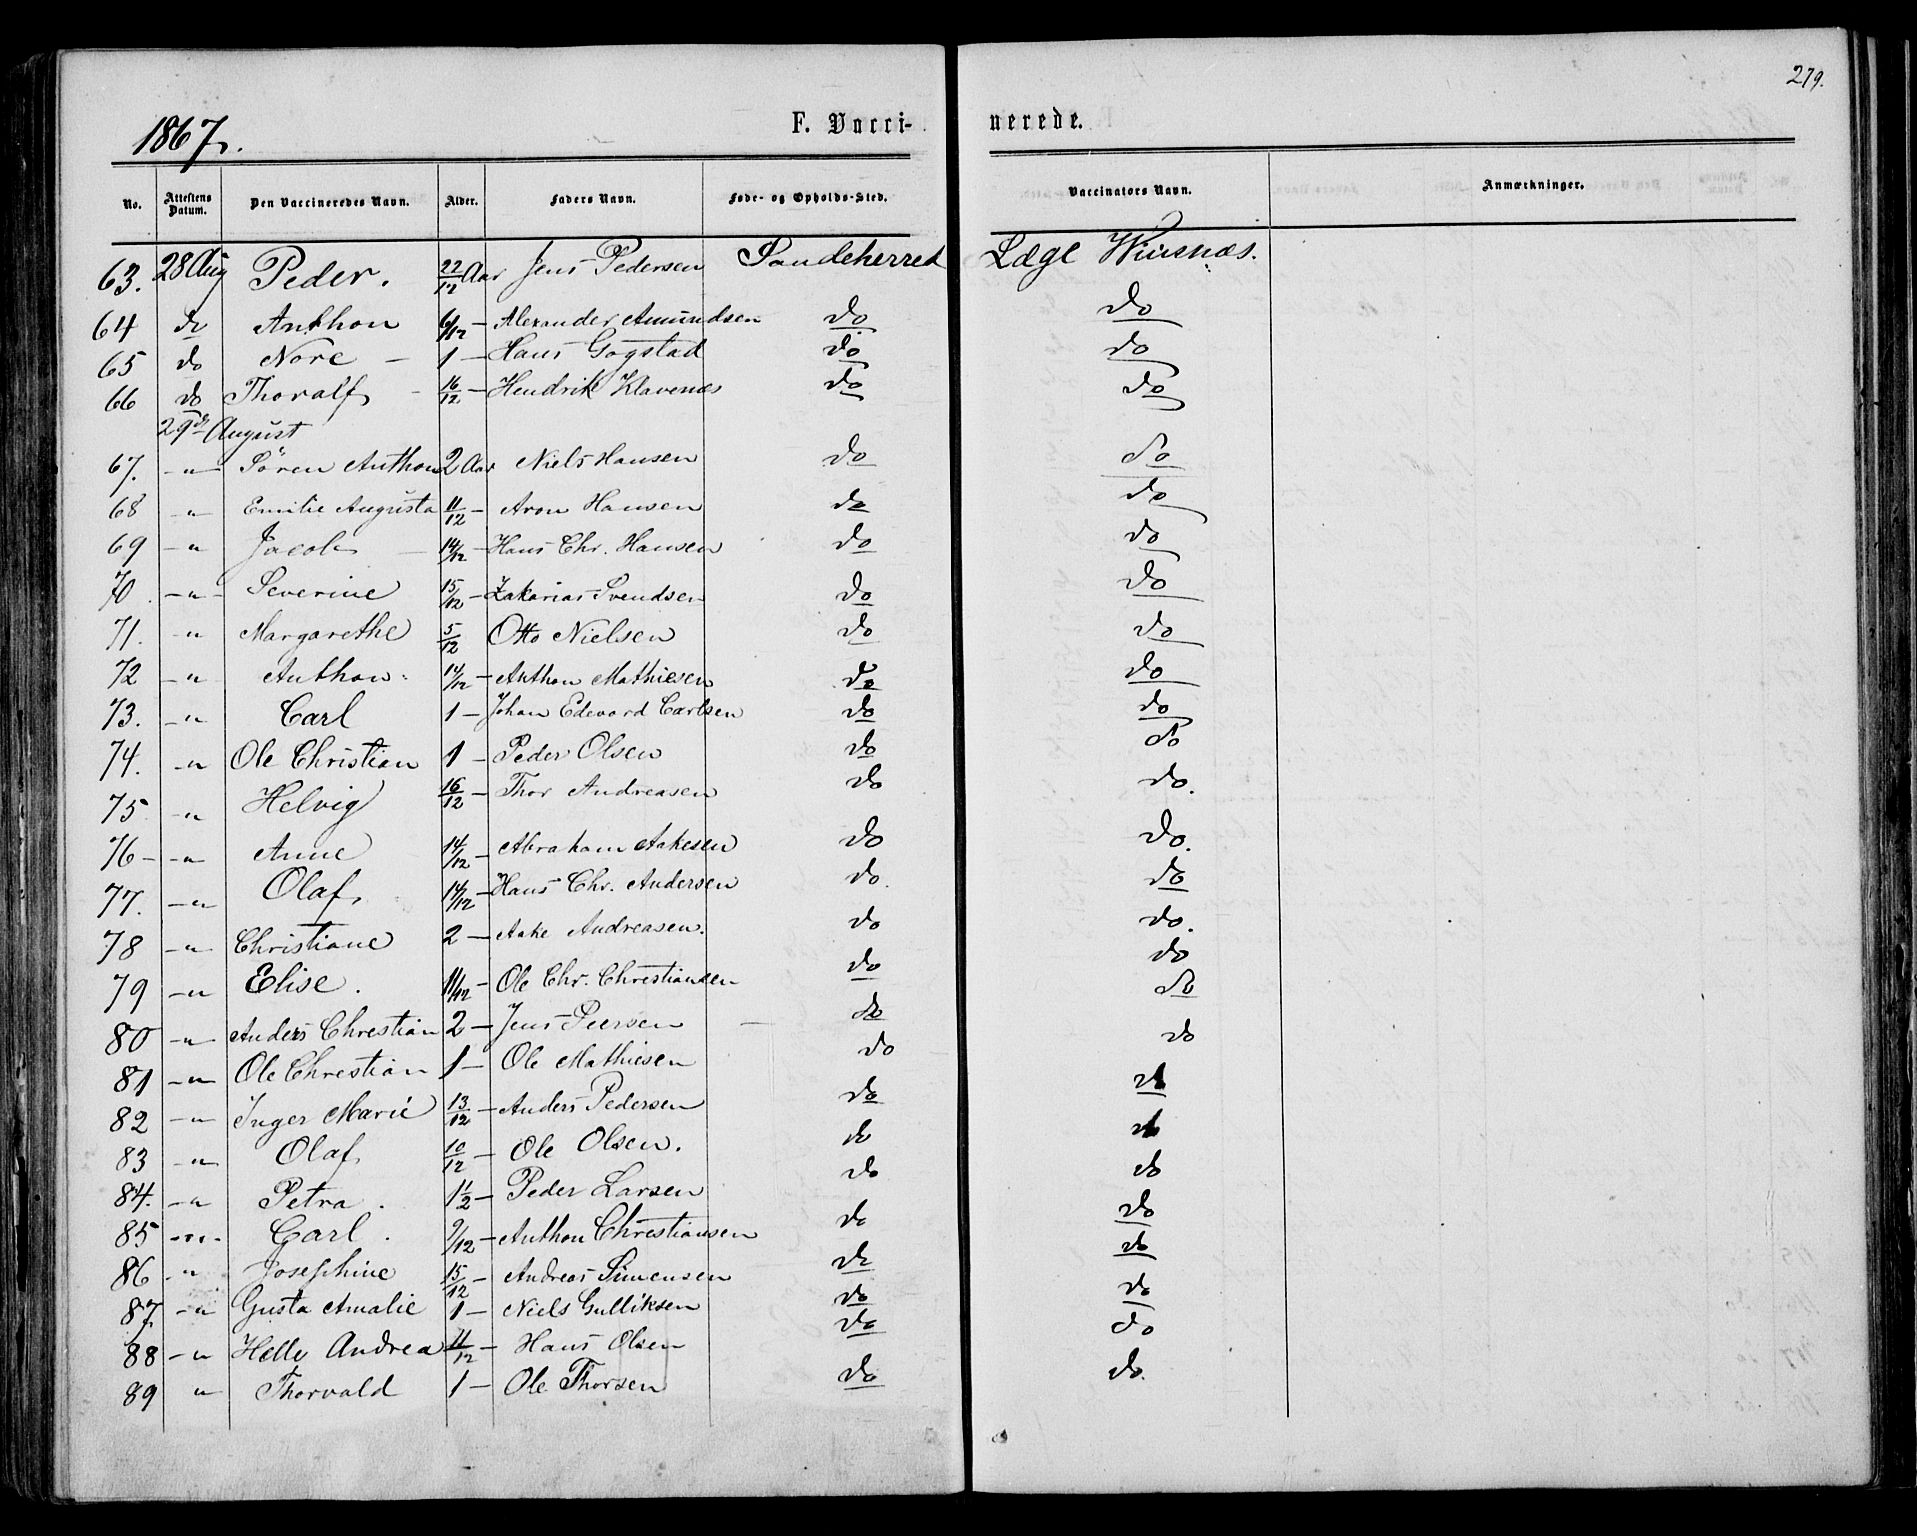 279.
1867.
F. Vacci- nerede.
No. Attestens Datum. Den Vaccineredes Navn. Alder. Faders Navn. Føde- og Opholds-Sted. Vaccinators Navn. Anmærkninger.
63. 28 Aug Peder. 22/12 Aar Jens Pedersen Sandeherred Læge
64 do Anthon 6/12 — Alexander Amundsen do do
65 do Nore — 1 — Hans Gogstad do do
66 do Thoralf - 16/12 — Hendrik Klavenæs do do
29de August
67. -"- Søren Anthon 2 Aar Niels Hansen do do
68 -"- Emilie Augusta 11/12 — Aron Hansen do do
69 -"- Jacob — 14/12 — Hans Chr. Hansen do do
70 -"- Severine 15/12 — Zakarias Svendsen do do
71. -"- Margarethe 5/12 Otto Nielsen do do
72 -"- Anthon 14/12 — Anthon Mathiesen do do
73. -"- Carl 1 — Johan Edevard Carlsen do do
74. -"- Ole Christian 1 — Peder Olsen do do
75 -"- Helvig 16/12 — Thor Andreasen do do.
76 — -"- Anne 14/12 — Abraham Aakesen do do.
77. -"- Olaf 14/12 — Hans Chr. Andersen do. do
78 -"- Christiane 2 — Aake Andreasen. do do.
79 -"- Elise. 11/12 — Ole Chr. Christiansen do do
80 -"- Anders Christian 2 — Jens Peersen do do
81 -"- Ole Christian 1 — Ole Mathiesen do do
82 -"- Inger Marie 13/12 — Anders Pedersen do do
83 -"- Olaf 10/12 — Ole Olsen. do do
84. -"- Petra. 1 1/2 — Peder Larsen do do
85 -"- Carl. 9/12 — Anthon Christiansen do do
86 -"- Josephine 15/12 — Andreas Simensen do do
87. -"- Gusta Amalie 1 — Niels Gulliksen do do
88 -"- Helle Andrea 11/12 — Hans Olsen do do
89 " Thorvald 1 — Ole Thorsen do do.